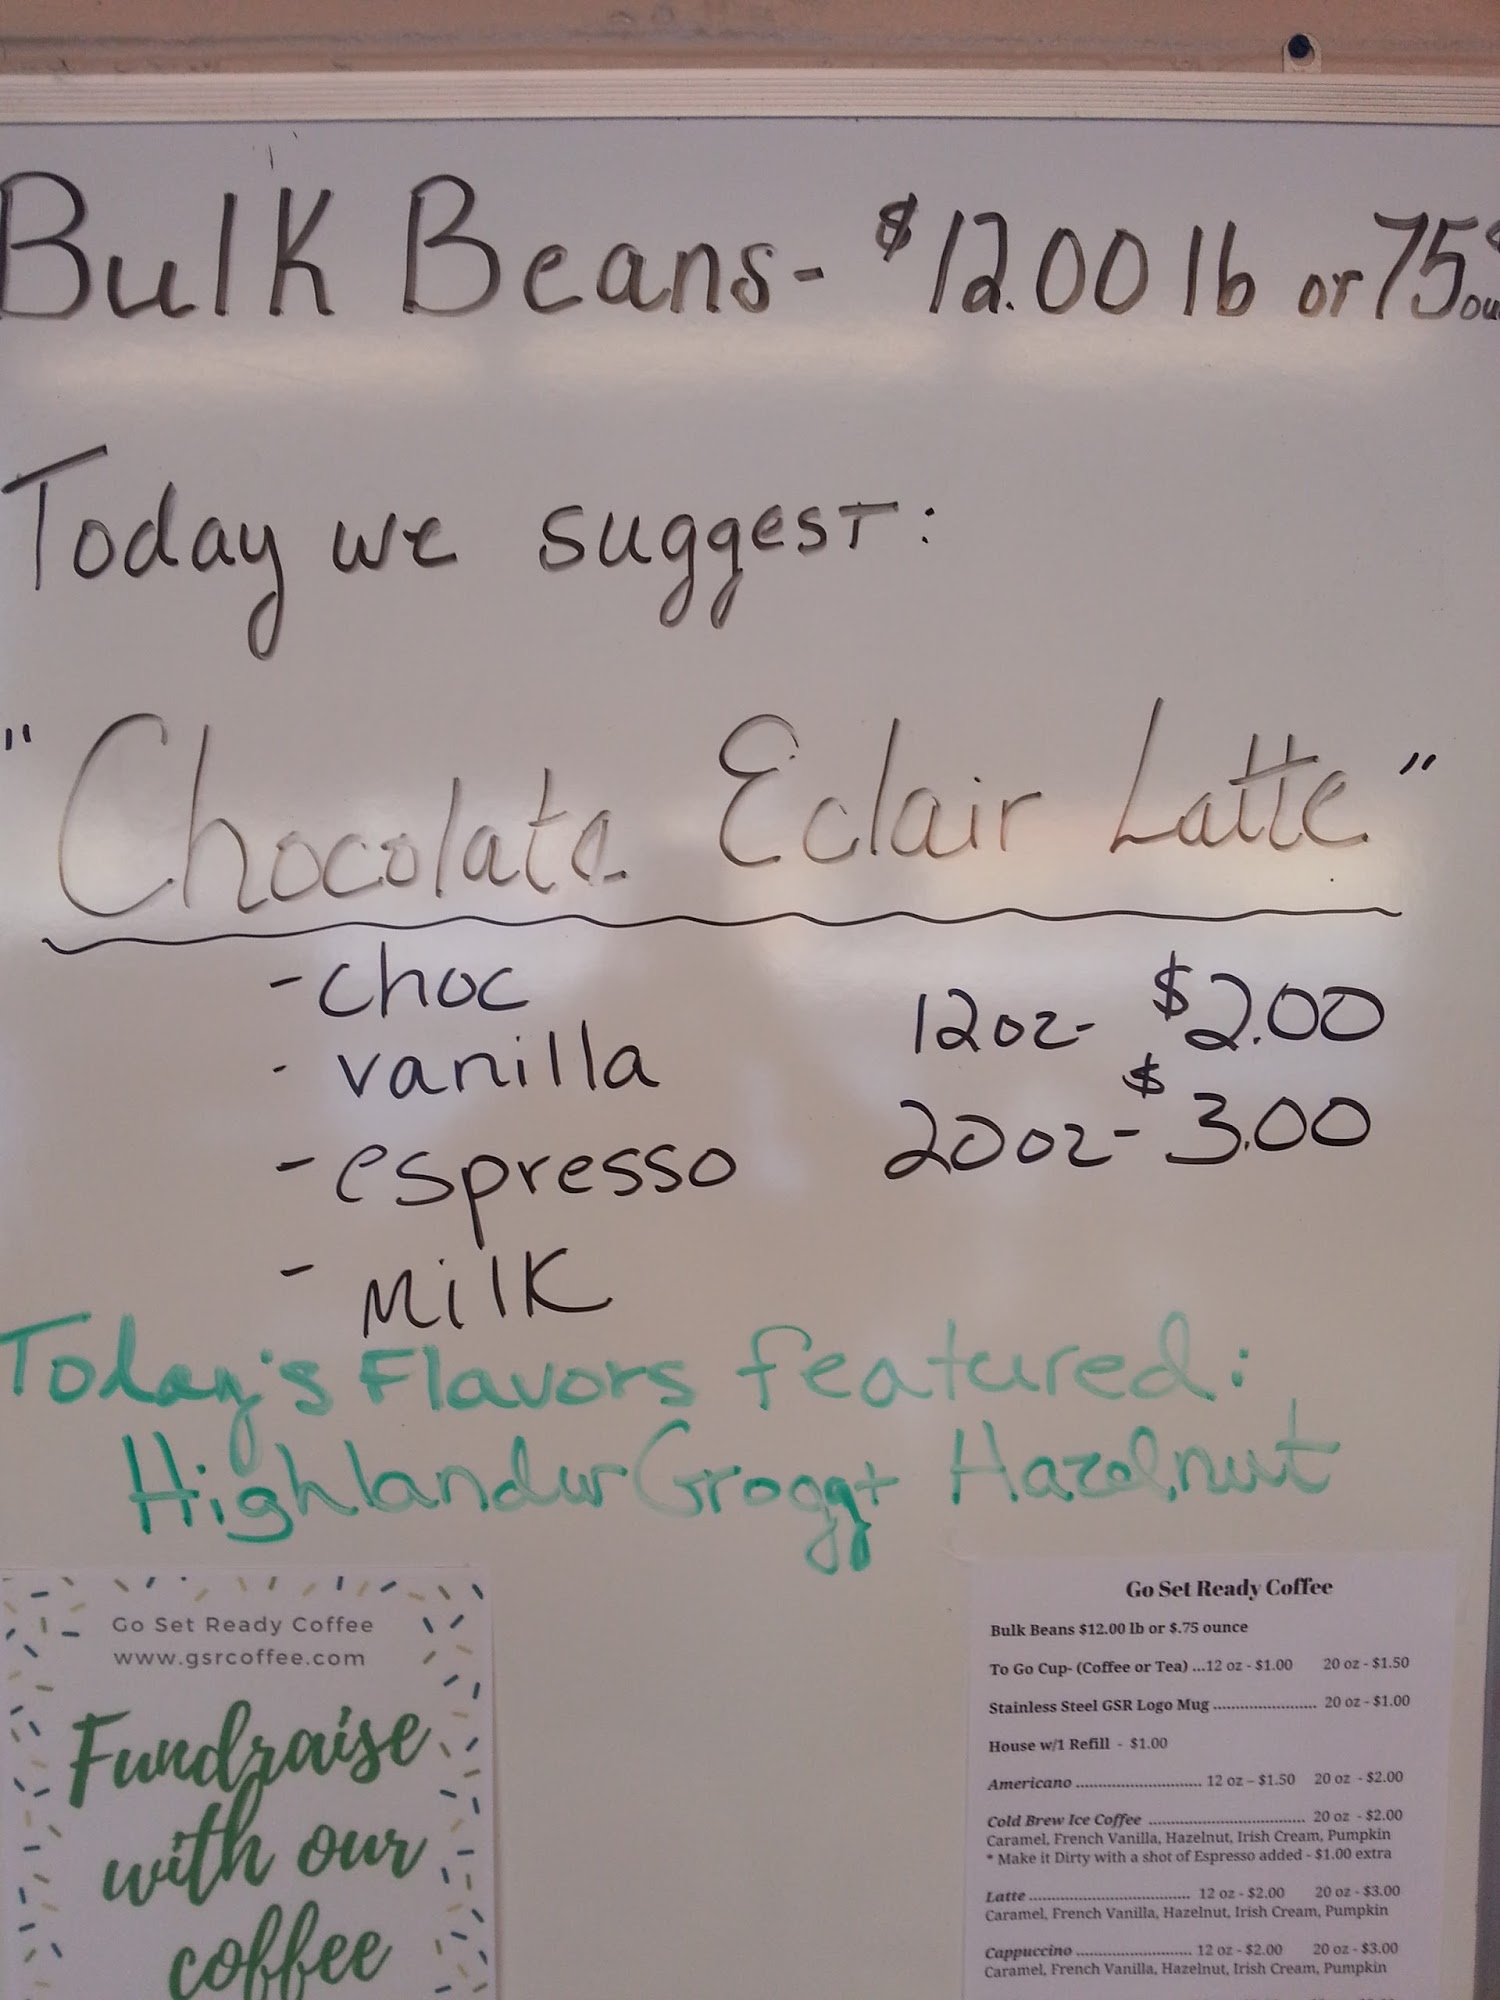 Bulk Beans- $12.00 lb or 75¢ ou
Today we suggest:
"Chocolate Eclair Latte"
-choc
- vanilla
- espresso
- Milk
12oz- $2.00
20oz- $3.00
Today's Flavors featured:
Highlander Grogg + Hazelnut
Go Set Ready Coffee
www.gsrcoffee.com
Fundraise
with our
coffee
Go Set Ready Coffee
Bulk Beans $12.00 lb or $.75 ounce
To Go Cup- (Coffee or Tea) ...12 oz - $1.00 20 oz - $1.50
Stainless Steel GSR Logo Mug ........................ 20 oz - $1.00
House w/1 Refill - $1.00
Americano ............................. 12 oz – $1.50 20 oz - $2.00
Cold Brew Ice Coffee .................................... 20 oz - $2.00
Caramel, French Vanilla, Hazelnut, Irish Cream, Pumpkin
* Make it Dirty with a shot of Espresso added - $1.00 extra
Latte ..................................... 12 oz - $2.00 20 oz - $3.00
Caramel, French Vanilla, Hazelnut, Irish Cream, Pumpkin
Cappuccino ........................... 12 oz - $2.00 20 oz - $3.00
Caramel, French Vanilla, Hazelnut, Irish Cream, Pumpkin